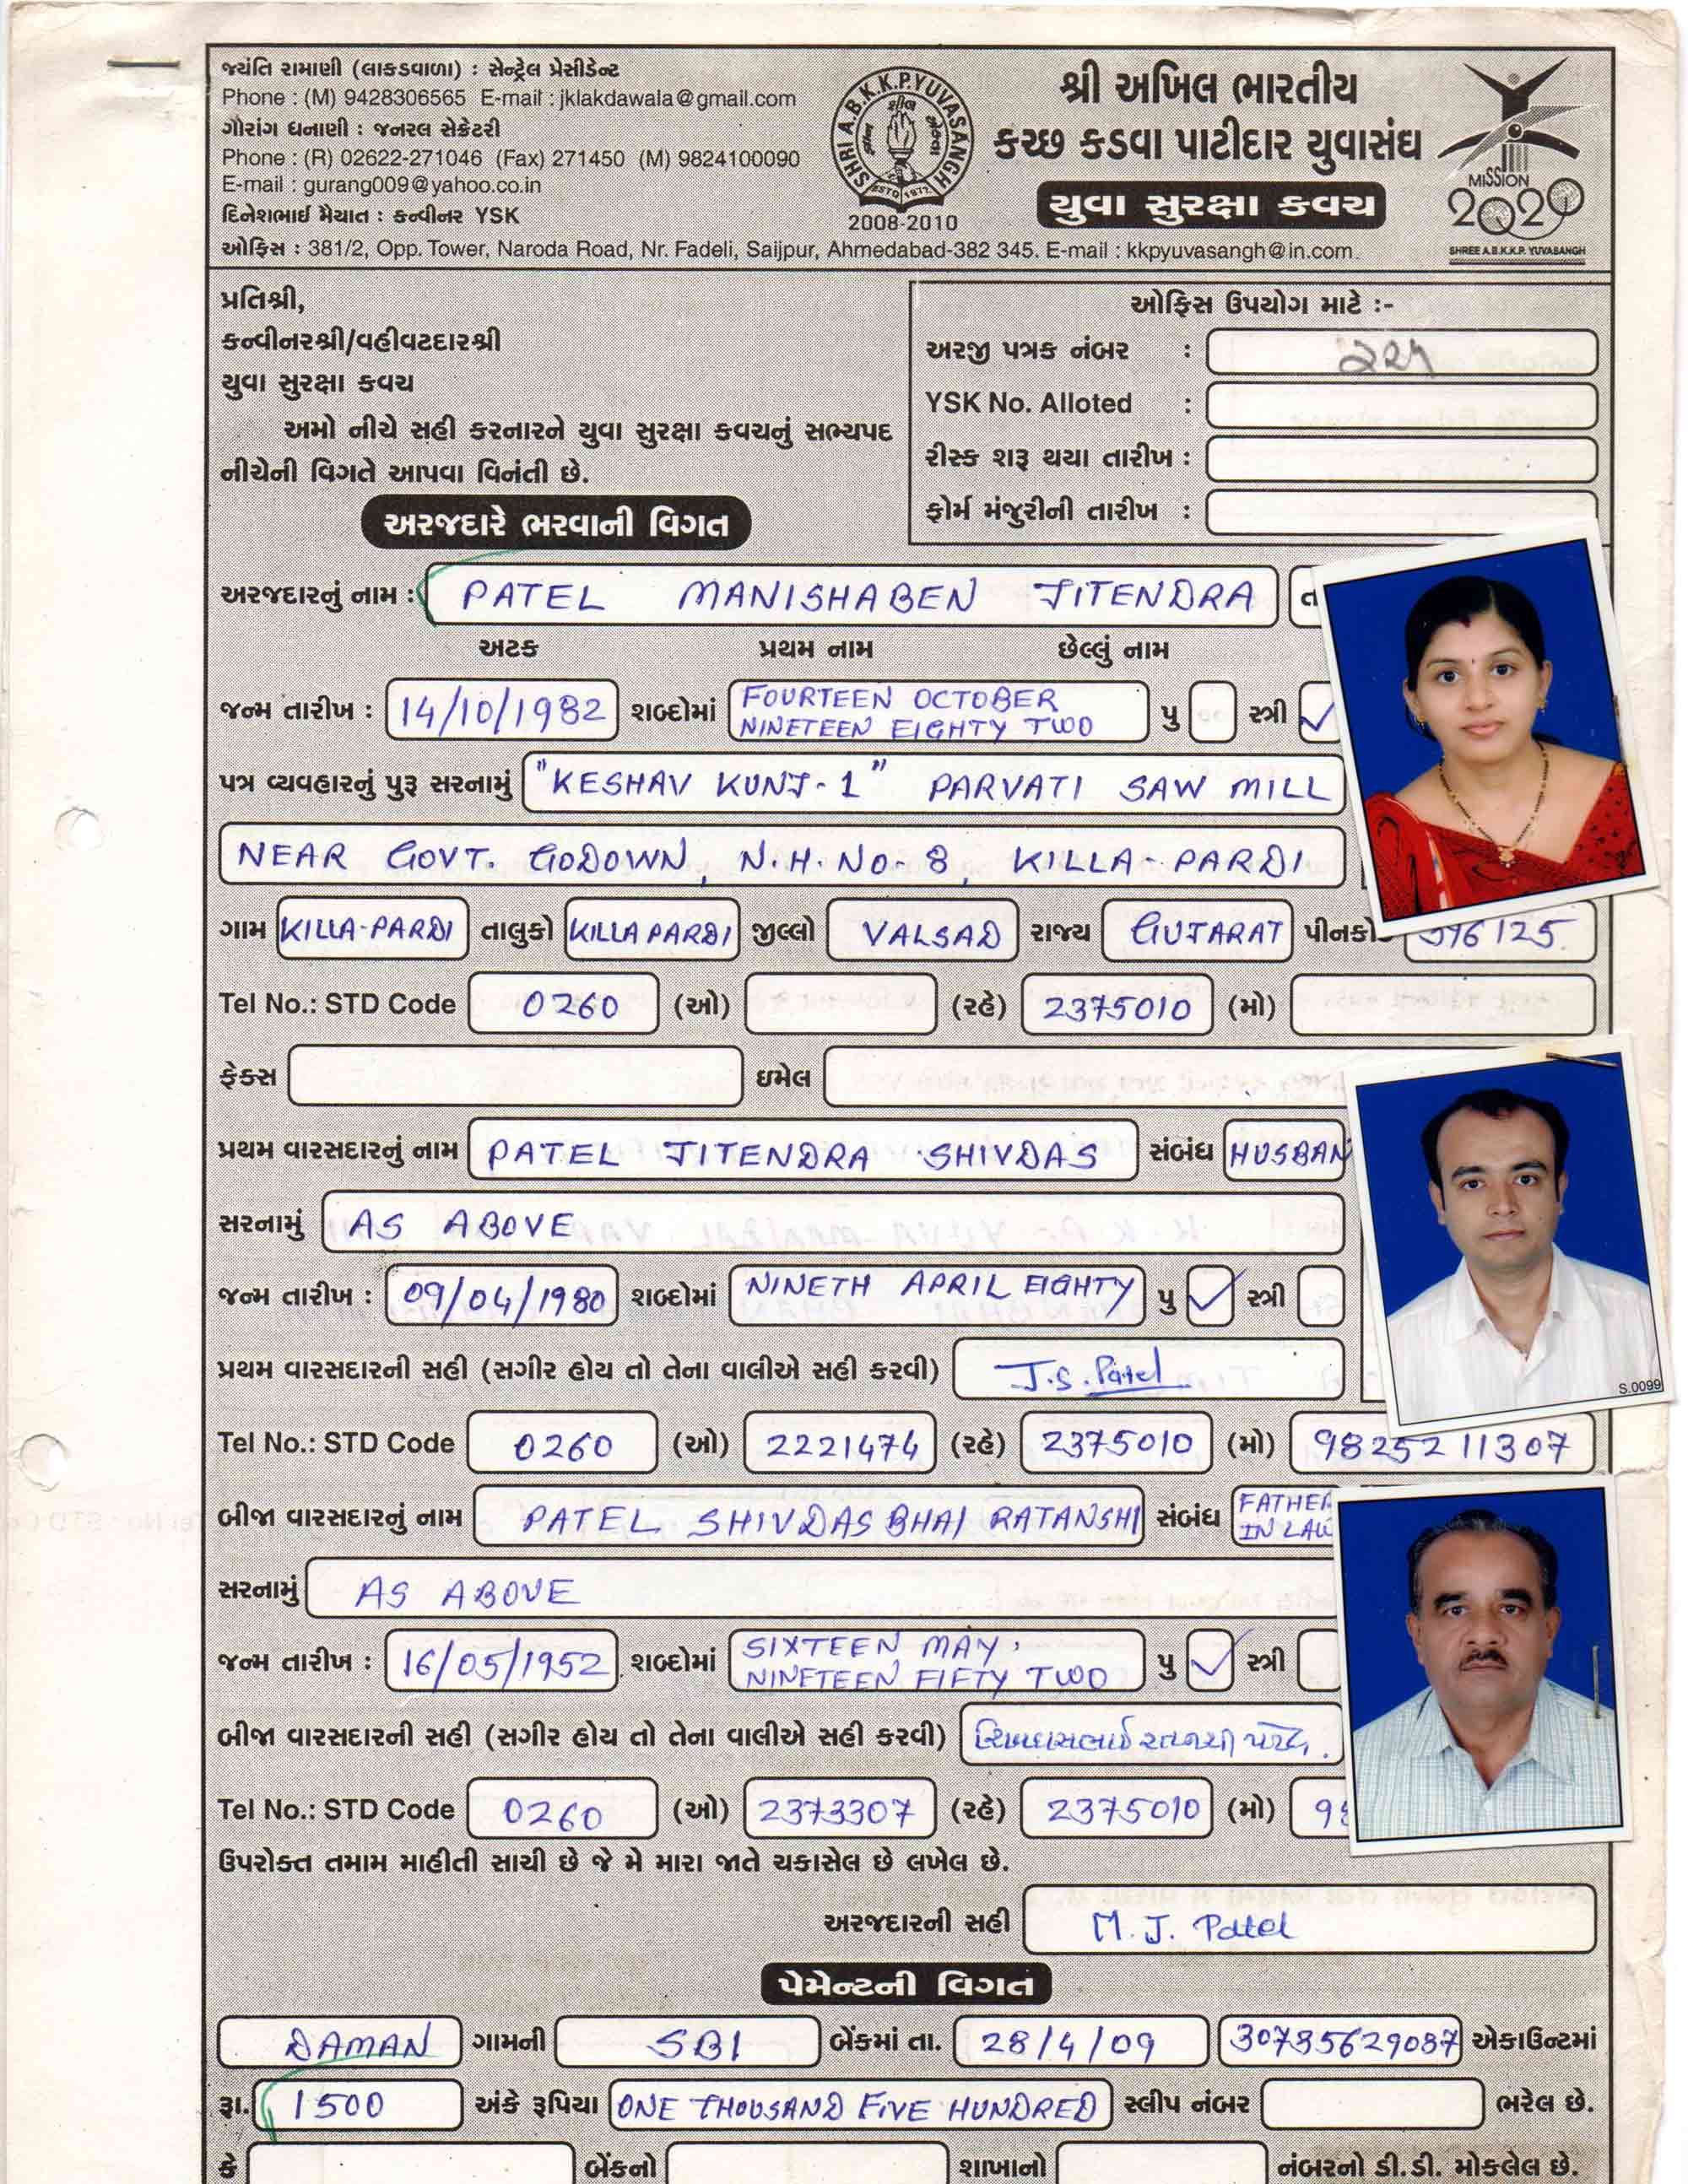 જયંતિ રામાણી (લાકડવાળા) : સેન્ટ્રલ પ્રેસીડેન્ટ
Phone : (M) 9428306565 E-mail : jklakdawala@gmail.com
ગૌરાંગ ધનાણી : જનરલ સેક્રેટરી
Phone : (R) 02622-271046 (Fax) 271450 (M) 9824100090
E-mail : gurang009@yahoo.co.in
દિનેશભાઈ મૈયાત : કન્વીનર YSK
ઓફિસ : 381/2, Opp. Tower, Naroda Road, Nr. Fadeli, Saijpur, Ahmedabad-382 345. E-mail : kkpyuvasangh@in.com.
SHRI A.B.K.K.P.YUVASANGH
ESTD 1977
2008-2010
શ્રી અખિલ ભારતીય
કચ્છ કડવા પાટીદાર યુવાસંઘ
યુવા સુરક્ષા કવચ
MISSION
2020
SHREE A.B.K.K.P. YUVASANGH
પ્રતિશ્રી,
કન્વીનરશ્રી/વહીવટદારશ્રી
યુવા સુરક્ષા કવચ
અમો નીચે સહી કરનારને યુવા સુરક્ષા કવચનું સભ્યપદ
નીચેની વિગતે આપવા વિનંતી છે.
ઓફિસ ઉપયોગ માટે :-
અરજી પત્રક નંબર : ૨૨૫
YSK No. Alloted :
રીસ્ક શરૂ થયા તારીખ :
ફોર્મ મંજુરીની તારીખ :
અરજદારે ભરવાની વિગત
અરજદારનું નામ : PATEL MANISHABEN JITENDRA
અટક પ્રથમ નામ છેલ્લું નામ
જન્મ તારીખ : 14/10/1982 શબ્દોમાં FOURTEEN OCTOBER NINETEEN EIGHTY TWO પુ સ્ત્રી ✓
પત્ર વ્યવહારનું પુરૂ સરનામું "KESHAV KUNJ-1" PARVATI SAW MILL
NEAR GOVT. GODOWN, N.H. NO-8, KILLA-PARDI
ગામ KILLA-PARDI તાલુકો KILLA PARDI જીલ્લો VALSAD રાજ્ય GUJARAT પીનકોડ 396125.
Tel No.: STD Code 0260 (ઓ) (રહે) 2375010 (મો)
ફેક્સ ઇમેલ
પ્રથમ વારસદારનું નામ PATEL JITENDRA SHIVDAS સંબંધ HUSBAN
સરનામું AS ABOVE
જન્મ તારીખ : 09/04/1980 શબ્દોમાં NINETH APRIL EIGHTY પુ ✓ સ્ત્રી
પ્રથમ વારસદારની સહી (સગીર હોય તો તેના વાલીએ સહી કરવી) J.S. Patel
S.0099
Tel No.: STD Code 0260 (ઓ) 2221474 (રહે) 2375010 (મો) 98252 11307
બીજા વારસદારનું નામ PATEL SHIVDASBHAI RATANSHI સંબંધ FATHER IN LAW
સરનામું AS ABOVE
જન્મ તારીખ : 16/05/1952 શબ્દોમાં SIXTEEN MAY, NINETEEN FIFTY TWO પુ ✓ સ્ત્રી
બીજા વારસદારની સહી (સગીર હોય તો તેના વાલીએ સહી કરવી) શિવદાસભાઈ રતનશી પટેલ.
Tel No.: STD Code 0260 (ઓ) 2373307 (રહે) 2375010 (મો) 98
ઉપરોક્ત તમામ માહીતી સાચી છે જે મે મારા જાતે ચકાસેલ છે લખેલ છે.
અરજદારની સહી M. J. Patel
પેમેન્ટની વિગત
DAMAN ગામની SBI બેંકમાં તા. 28/4/09 30785629087 એકાઉન્ટમાં
રૂા. 1500 અંકે રૂપિયા ONE THOUSAND FIVE HUNDRED સ્લીપ નંબર ભરેલ છે.
કે બેંકનો શાખાનો નંબરનો ડી.ડી. મોકલેલ છે.